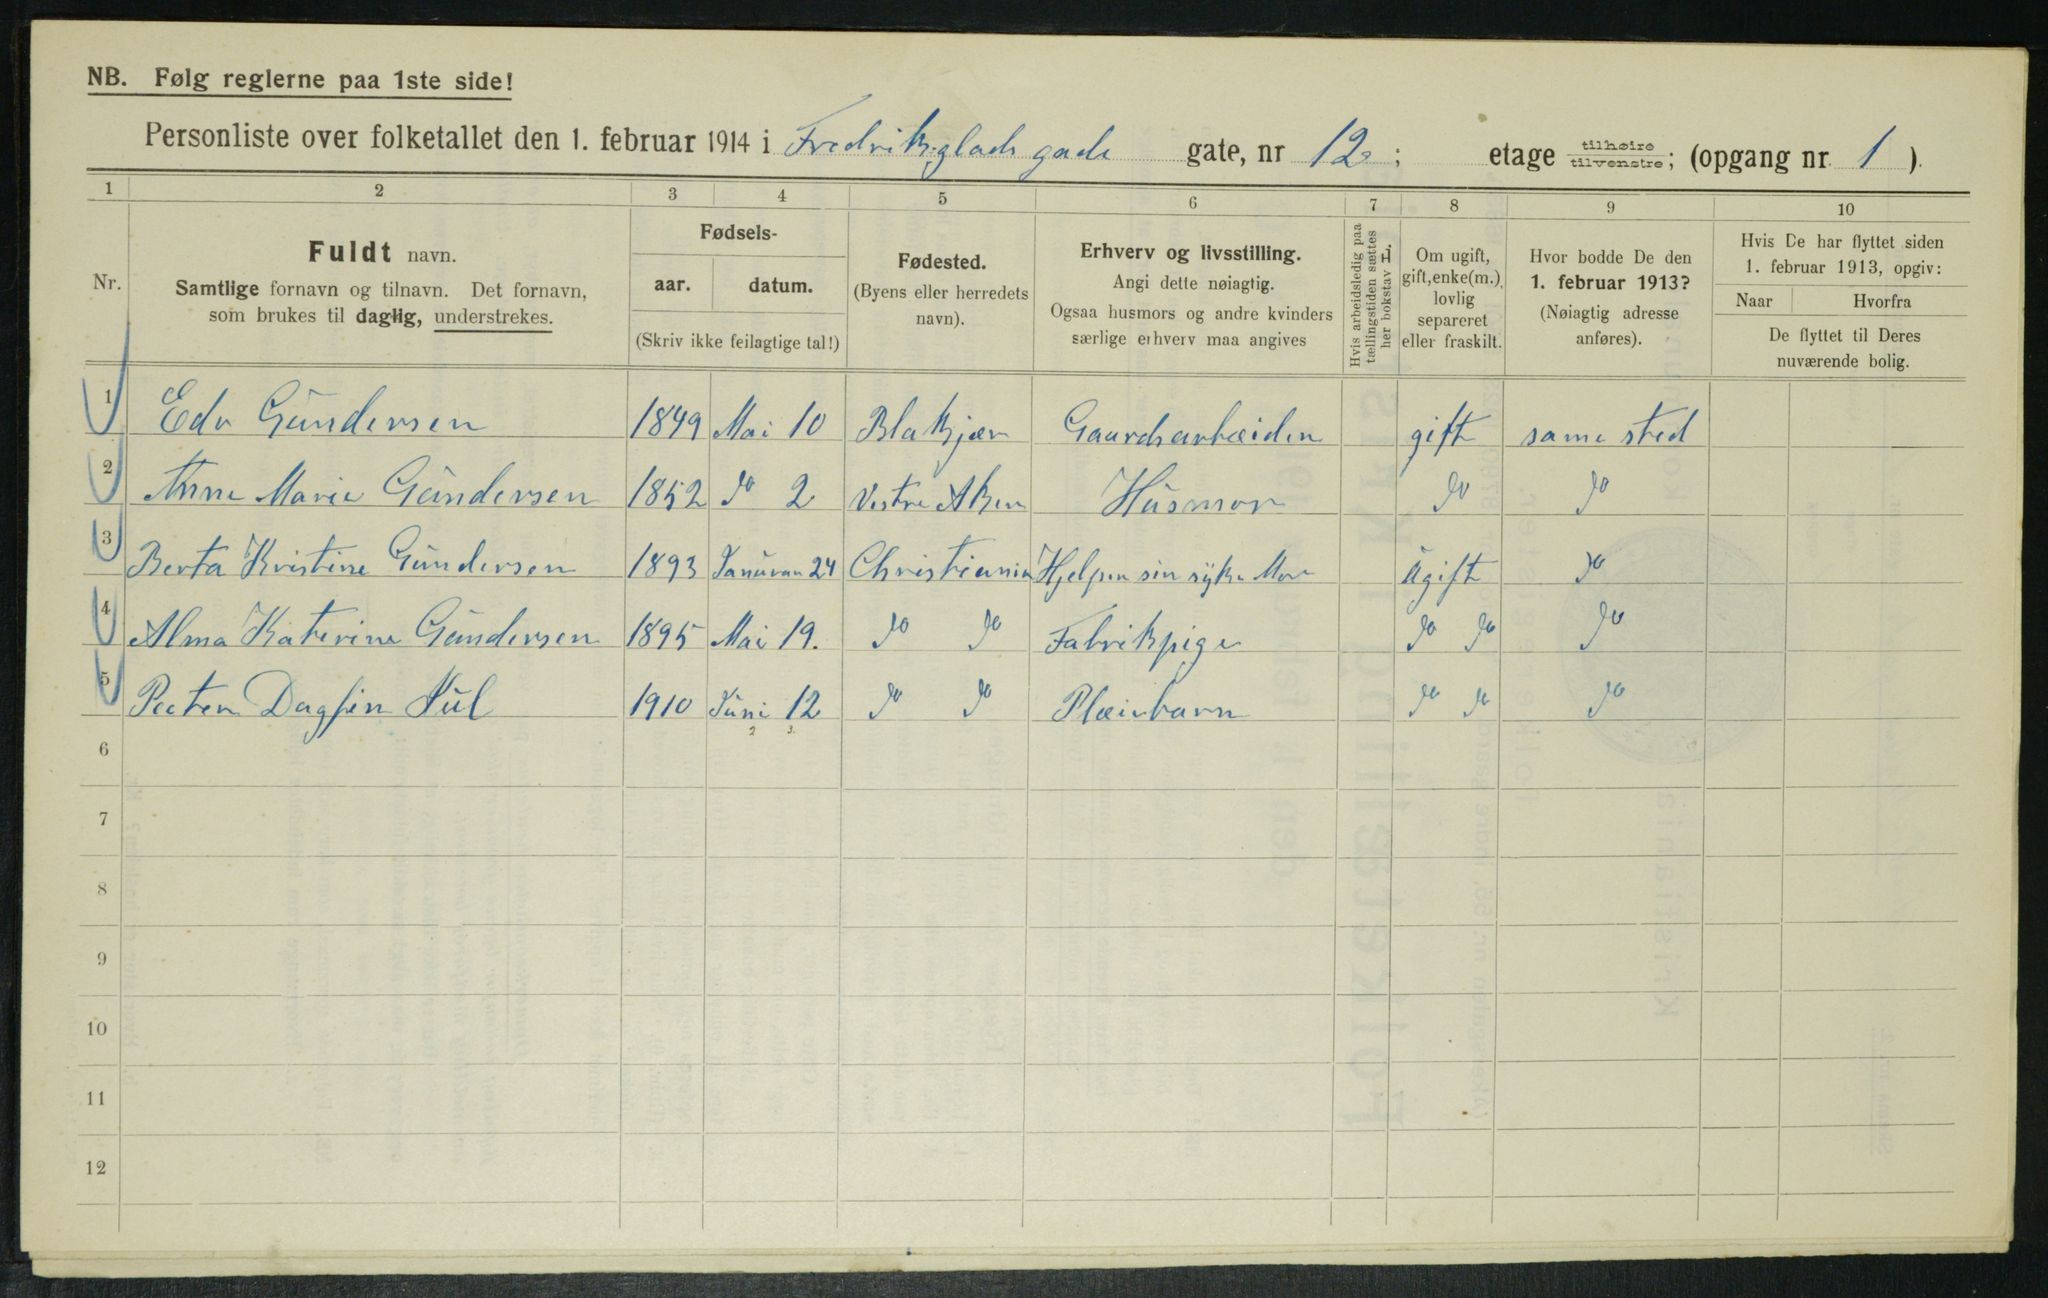 NB. Følg reglerne paa 1ste side!
Personliste over folketallet den 1. februar 1914 i Fredrikglads gade gate, nr 12; etage tilhøire tilvenstre; (opgang nr. 1).
1 2 3 4 5 6 7 8 9 10
Nr.
Fuldt navn.
Samtlige fornavn og tilnavn. Det fornavn,
som brukes til daglig, understrekes.
Fødsels-
aar. datum.
(Skriv ikke feilagtige tal!)
Fødested.
(Byens eller herredets
navn).
Erhverv og livsstilling.
Angi dette nøiagtig.
Ogsaa husmors og andre kvinders
særlige erhverv maa angives
Hvis arbeidsledig paa
tællingstiden sættes
her bokstav L.
Om ugift,
gift, enke(m.),
lovlig
separeret
eller fraskilt.
Hvor bodde De den
1. februar 1913?
(Nøiagtig adresse
anføres).
Hvis De har flyttet siden
1. februar 1913, opgiv:
Naar Hvorfra
De flyttet til Deres
nuværende bolig.
1 Edv Gundersen 1849 Mai 10 Blakjær Gaardsarbeider gift same sted
2 Anne Marie Gundersen 1852 do 2 Vestre Aker Husmor do do
3 Berta Kristine Gundersen 1893 Januar 24 Christiania Hjelper sin syke Mor Ugift do
4 Alma Katerine Gundersen 1895 Mai 19. do do Fabrikpige do do do
5 Peeter Dagfin Jul 1910 Juni 12 do do Pleiebarn do do do
2 3.
6
7
8
9
10
11
12